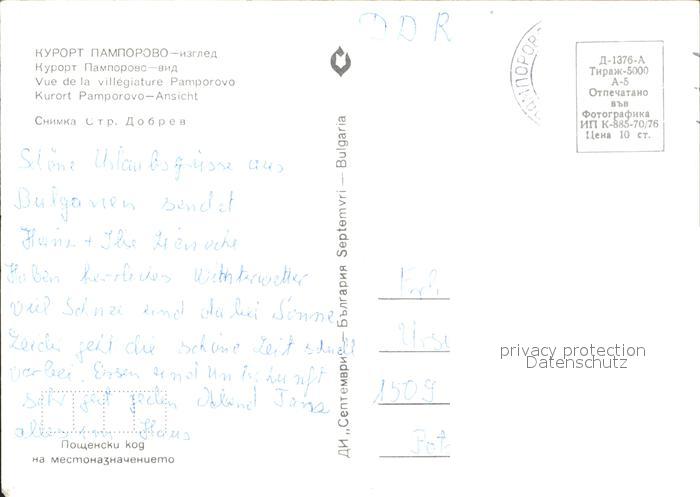 КУРОРТ ПАМПОРОВО—изглед
Курорт Пампорово—вид
Vue de la villégiature Pamporovo
Kurort Pamporovo—Ansicht
Снимка Стр. Добрев
Schöne Urlaubsgrüsse aus
Bulgarien sendet
Hans + Ilse
Haben herrliches Winterwetter
viel Schnee und dabei Sonne
Leider geht die schöne Zeit schnell
vorbei. Essen und Unterkunft
sehr gut jeden Abend Tanz
alles im Haus
Пощенски код
на местоназначението
ДИ „Септември — България Septemvri — Bulgaria
DDR
ПАМПОРОВО
Д-1376-А
Тираж-5000
А-5
Отпечатано
във
Фотографика
ИП К-885-70/76
Цена 10 ст.
1509
Pot
privacy protection
Datenschutz